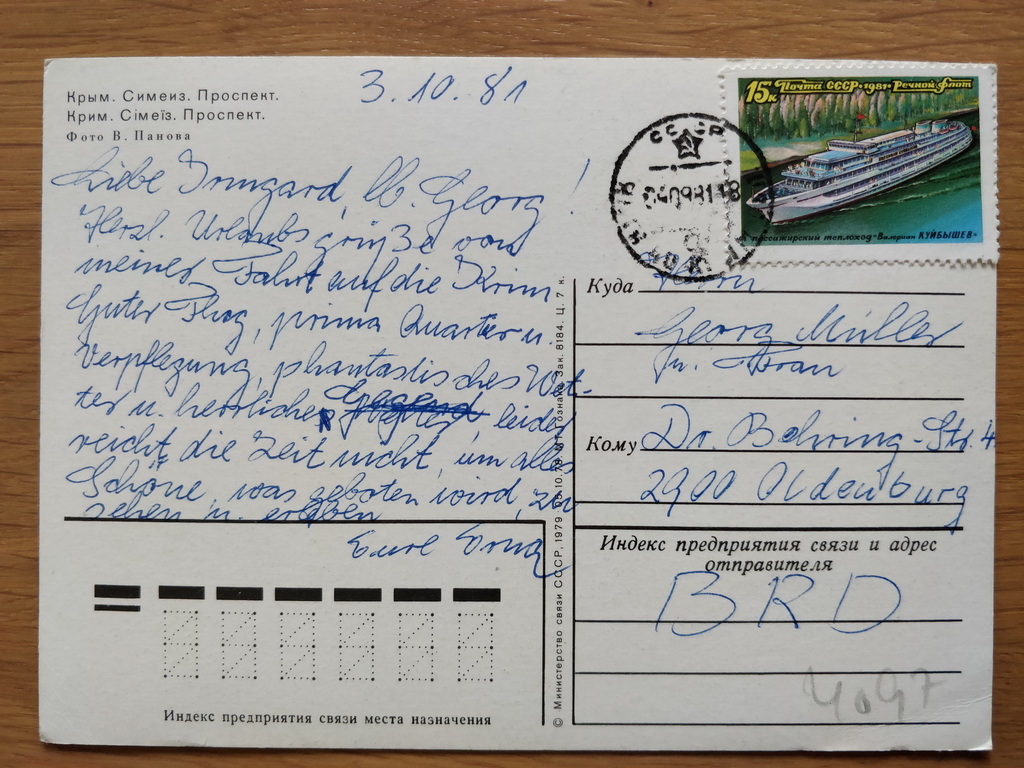 Крым. Симеиз. Проспект.
Крим. Сімеїз. Проспект.
Фото В. Панова
3.10.81
Liebe Irmgard, lb. Georg!
Herzl. Urlaubsgrüße von
meiner Fahrt auf die Krim
Guter Flug, prima Quartier u.
Verpflegung, phantastisches Wet-
ter u. herrliche Gegend, leider
reicht die Zeit nicht, um alles
Schöne, was geboten wird, zu
sehen u. erleben
Eure
15к Почта СССР·1981·Речной флот
пассажирский теплоход "Валериан КУЙБЫШЕВ"
СССР
Куда Herrn
Georg Müller
u. Frau
Кому Dr. Behring-Str. 4
2900 Oldenburg
Индекс предприятия связи и адрес
отправителя
BRD
4097
Индекс предприятия связи места назначения
© Министерство связи СССР, 1979 Зак. 8184. Ц. 7 к.